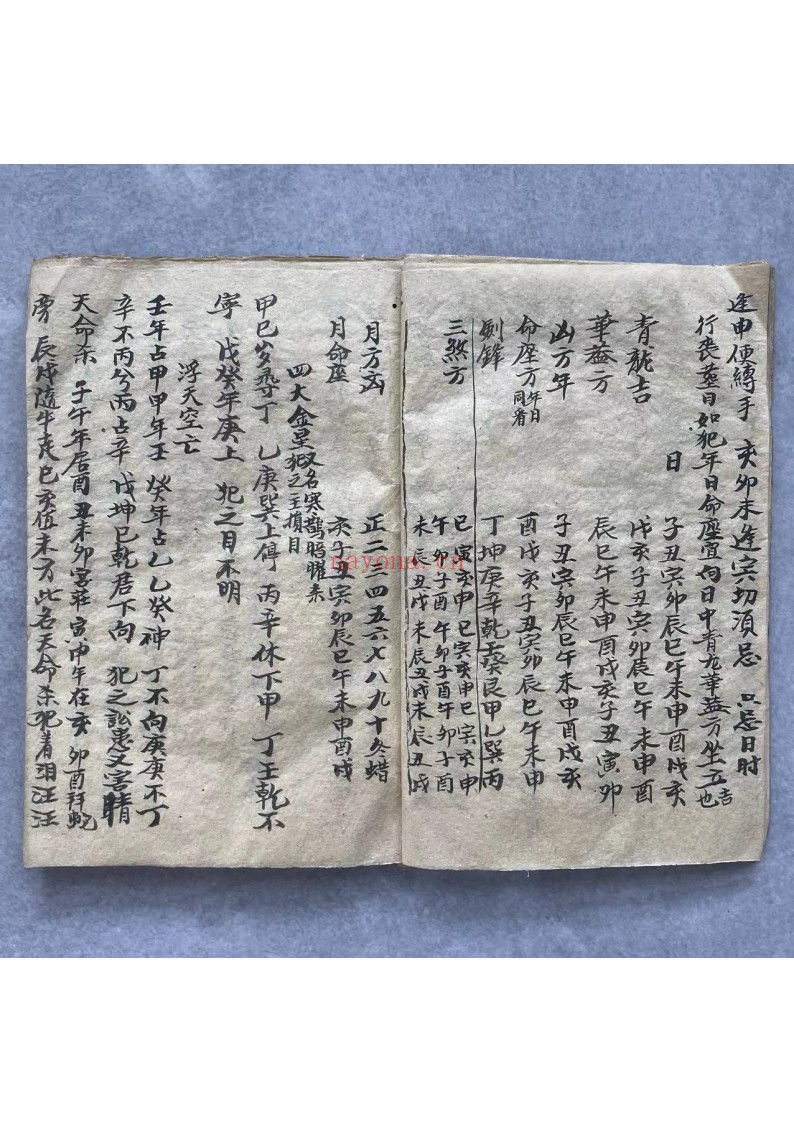 逢申便縛手　亥卯未逢寅切須忌　只忌日时
行丧葬日如犯年日命座宜向日中青龙華蓋方坐立吉也
日　子丑寅卯辰巳午未申酉戌亥
青龍吉　戌亥子丑寅卯辰巳午未申酉
華蓋方　辰巳午未申酉戌亥子丑寅卯
凶方年　子丑寅卯辰巳午未申酉戌亥
命座方年日同看　酉戌亥子丑寅卯辰巳午未申
劍鋒　丁坤庚辛乾壬癸艮甲乙巽丙
三煞方　巳寅亥申巳寅亥申巳寅亥申
午卯子酉午卯子酉午卯子酉
未辰丑戌未辰丑戌未辰丑戌
月方凶　正二三四五六七八九十冬蜡
月命座　亥子丑寅卯辰巳午未申酉戌
四大金星又名寒鵲昭曜煞犯之主損目
甲巳岁尋丁　乙庚巽上停　丙辛休下甲　丁壬乾不
寧　戊癸年庚上　犯之目不明
浮天空亡
壬年占甲甲年壬　癸年占乙乙癸神　丁不向庚庚不丁
辛不丙兮丙占辛　戊坤巳乾居下向　犯之訟患又害睛
天命杀　子午年居酉丑未卯宮莊　寅申午在亥　卯酉拜蛇
旁　辰戌隨牛走巳亥值未方此名天命杀犯着泪汪汪
nayona.cn